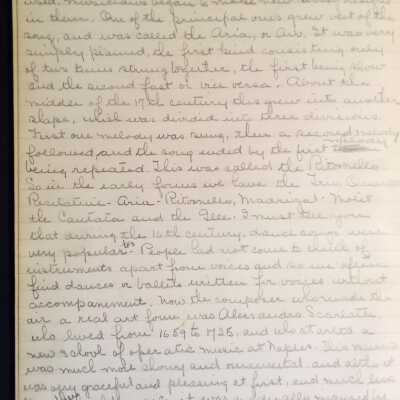 used. Musicians began to
in them. One of the principal ones grew out of the
song, and was called the Aria, or Air. It was very
simply planned, the first kind consisting only
of two tunes strung together, the first being slow
and the second fast or vice versa. About the
middle of the 17th century this grew into another
shape, which was divided into three divisions.
First one melody was sung, then a second melody
followed, and the song ended by the first melody
being repeated. This was called the Ritornello.
So in the early forms we have the
Recitative - Aria - Ritornello, Madrigal - Motet
the Cantata and the Glee. I must tell you
that during the 16th century, dance songs were
very popular too. People had not come to think of
instruments apart from voices and so we often
find dances or ballets written for voices without
accompaniment. Now the composer who made the
air a real art form was Alessandro Scarlatti,
who lived from 1659 to 1725, and who started a
new school of operatic music at Naples. This music
was much more showy and ornamental and altho it
was very graceful and pleasing at first, and much less
it was gradually